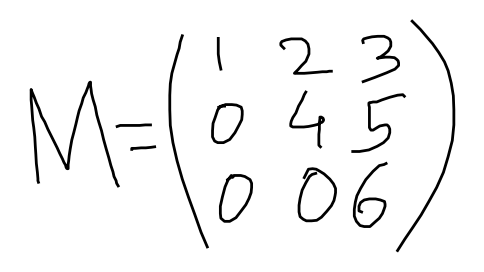 1 2 3
M = ( 0 4 5 )
0 0 6